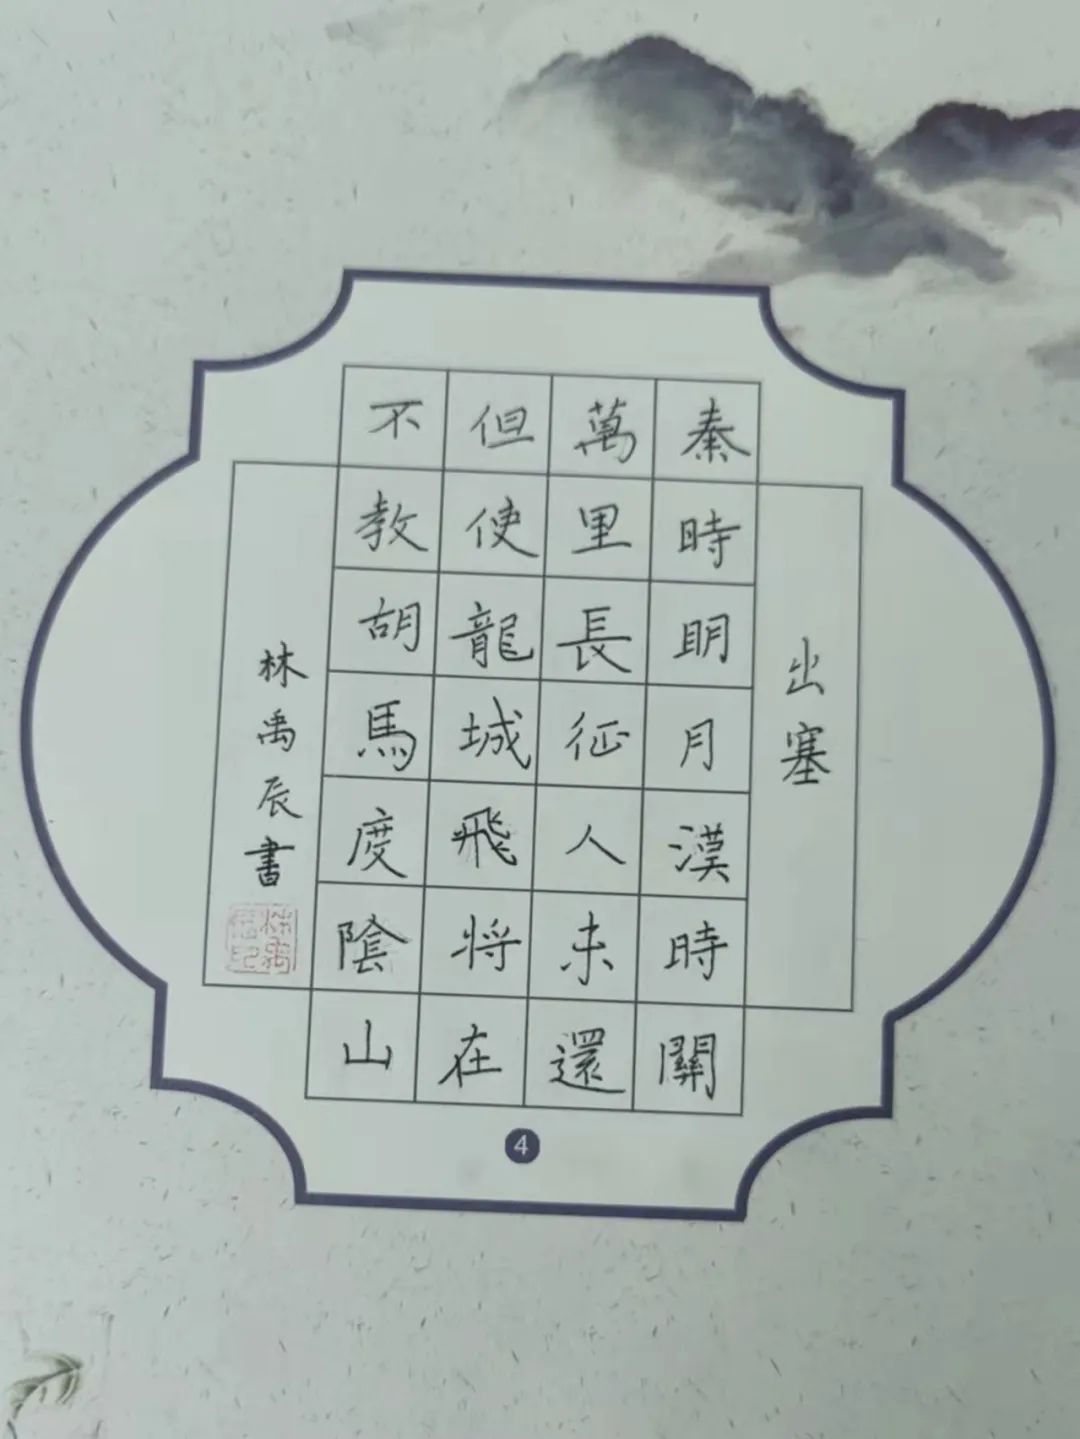 出塞
秦時明月漢時關
萬里長征人未還
但使龍城飛將在
不教胡馬度陰山
林禹辰書
林禹辰印
4